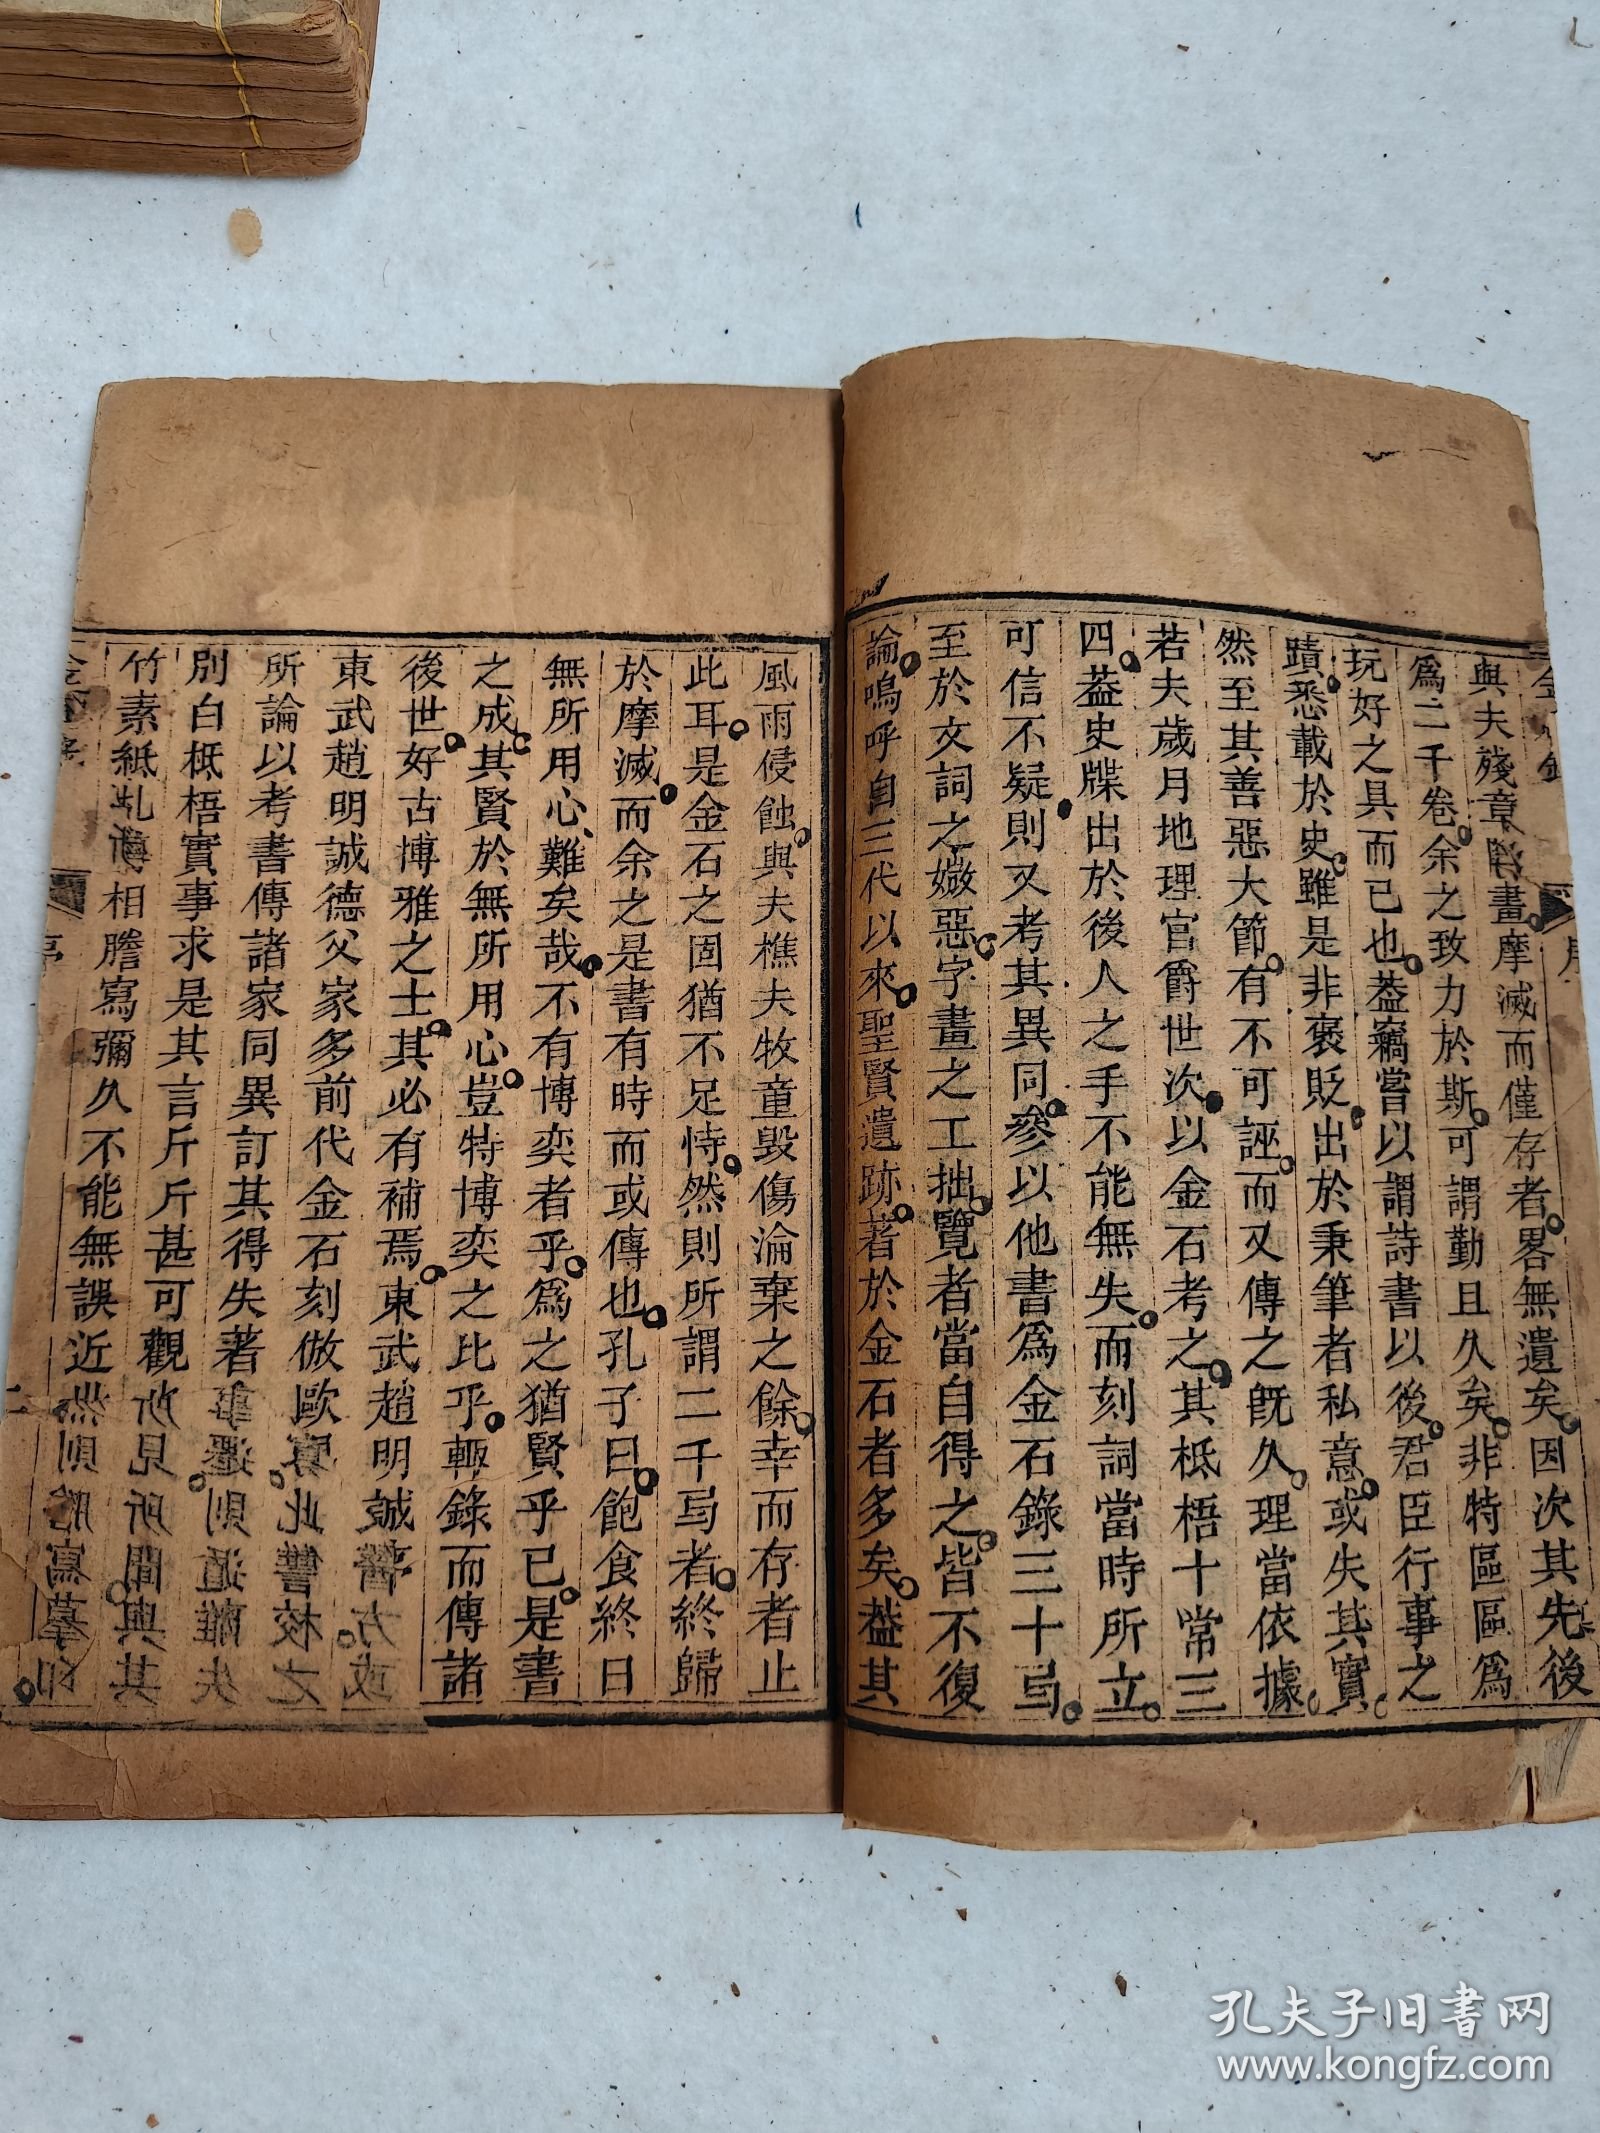 與夫殘章斷畫摩滅而僅存者畧無遺矣因次其先後
爲二千卷余之致力於斯可謂勤且久矣非特區區爲
玩好之具而已也葢竊嘗以謂詩書以後君臣行事之
蹟悉載於史雖是非褒貶出於秉筆者私意或失其實
然至其善惡大節有不可誣而又傳之旣久理當依據
若夫歲月地理官爵世次以金石考之其柢梧十常三
四葢史牒出於後人之手不能無失而刻詞當時所立
可信不疑則又考其異同參以他書爲金石錄三十卷
至於文詞之媺惡字畫之工拙覽者當自得之皆不復
論嗚呼自三代以來聖賢遺跡著於金石者多矣葢其
風雨侵蝕與夫樵夫牧童毀傷淪棄之餘幸而存者止
此耳是金石之固猶不足恃然則所謂二千卷者終歸
於摩滅而余之是書有時而或傳也孔子曰飽食終日
無所用心難矣哉不有博奕者乎爲之猶賢乎已是書
之成其賢於無所用心豈特博奕之比乎輒錄而傳諸
後世好古博雅之士其必有補焉東武趙明誠
東武趙明誠德父家多前代金石刻倣歐
所論以考書傳諸家同異訂其得失著
別白柢梧實事求是其言斤斤甚可觀
竹素紙札 相謄寫彌久不能無誤近
序
二
孔夫子旧书网
www.kongfz.com